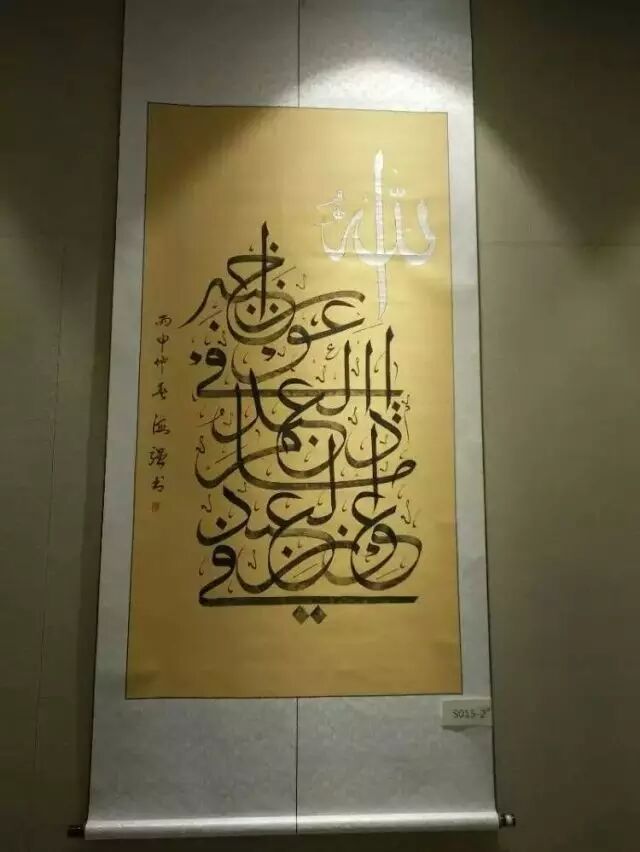 الله
في عون العبد
ما دام العبد
في عون اخيه
丙申仲春 海强书
S015-2